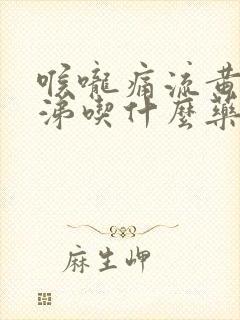 喉嚨痛流黃
涕喫什麼藥
麻生岬